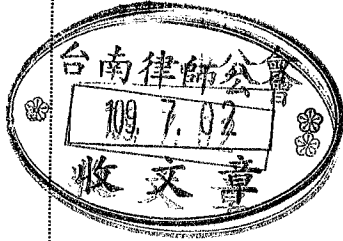 台南律師公會
109. 7. 02
收文章